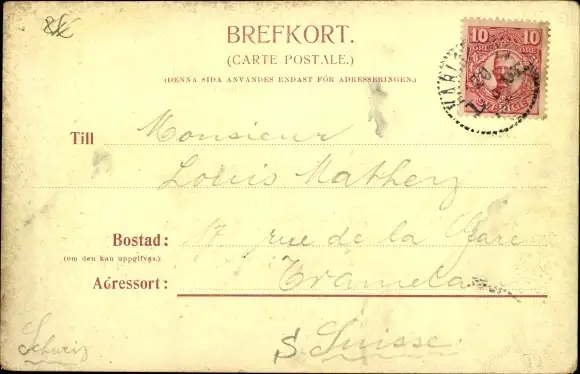 BREFKORT.
(CARTE POSTALE.)
(DENNA SIDA ANVÄNDES ENDAST FÖR ADRESSERINGEN.)
10 10
ÖRE ÖRE
SVERIGE
Till Monsieur
Louis Mathey
Bostad: 17 rue de la Gare
(om den kan uppgifvas.)
Adressort: Tramelan
S Suisse.
Schweiz